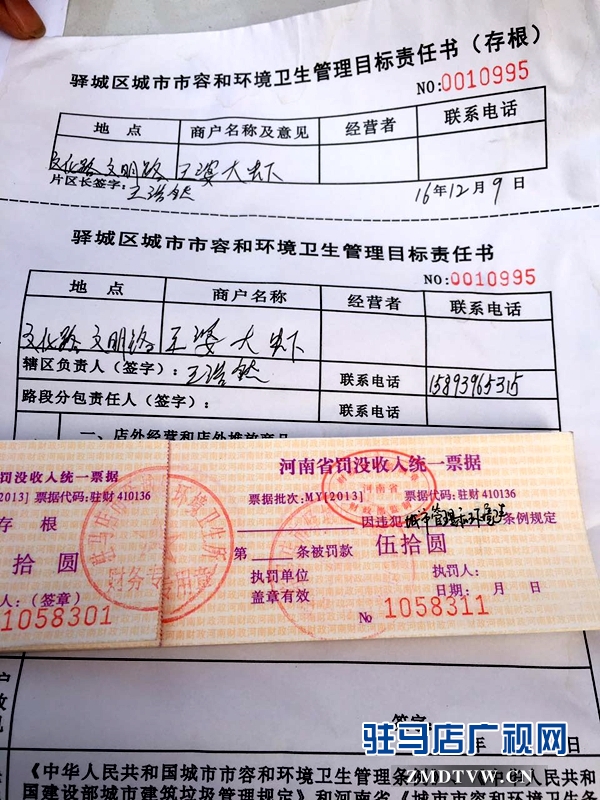 驿城区城市市容和环境卫生管理目标责任书（存根）
NO:0010995
地 点 商户名称及意见 经营者 联系电话
文化路 文明路 王婆大虾
片区长签字： 王浩然 16年12月9日
驿城区城市市容和环境卫生管理目标责任书
NO:0010995
地 点 商户名称 经营者 联系电话
文化路 文明路 王婆大虾
辖区负责人（签字）： 王浩然 联系电话 15893965315
路段分包责任人（签字）： 联系电话
一、店外经营和店外堆放商品
罚没收入统一票据
[2013] 票据代码：驻财 410136
存 根
拾 圆
人：（签章）
1058301
财务专用章
河南省罚没收入统一票据
票据批次：MY[2013] 票据代码：驻财 410136
河南省
因违犯 城市管理和环境卫生 条例规定
第 条被罚款 伍拾圆
执罚单位 执罚人：
盖章有效 日期： 月 日
No 1058311
签字
年 日
驻马店广视网
ZMDTVW.CN
《中华人民共和国城市市容和环境卫生管理条例
国建设部城市建筑垃圾管理规定》和河南省《城市市容和环境卫生